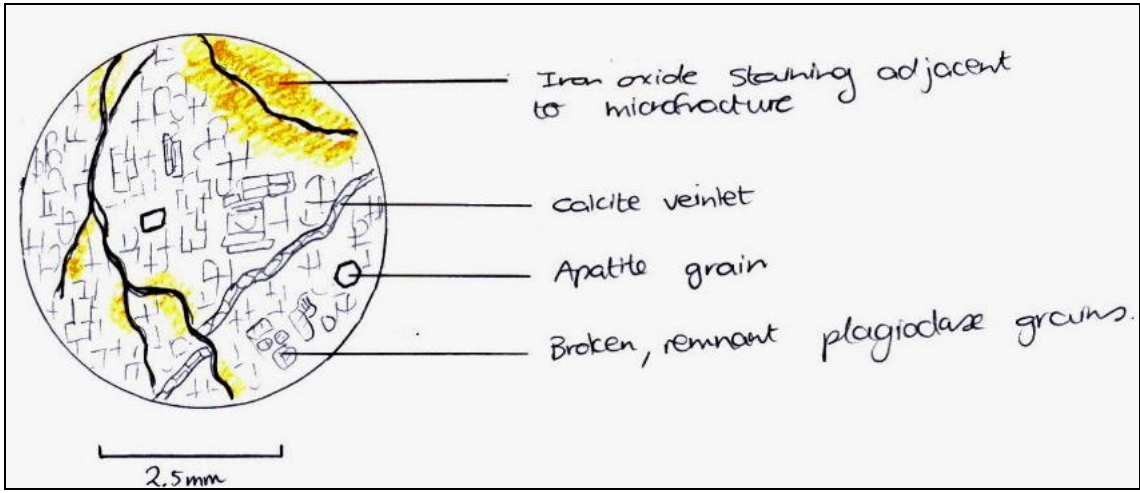 Iron oxide staining adjacent
to microfracture
Calcite veinlet
Apatite grain
Broken, remnant plagioclase grains.
2.5mm